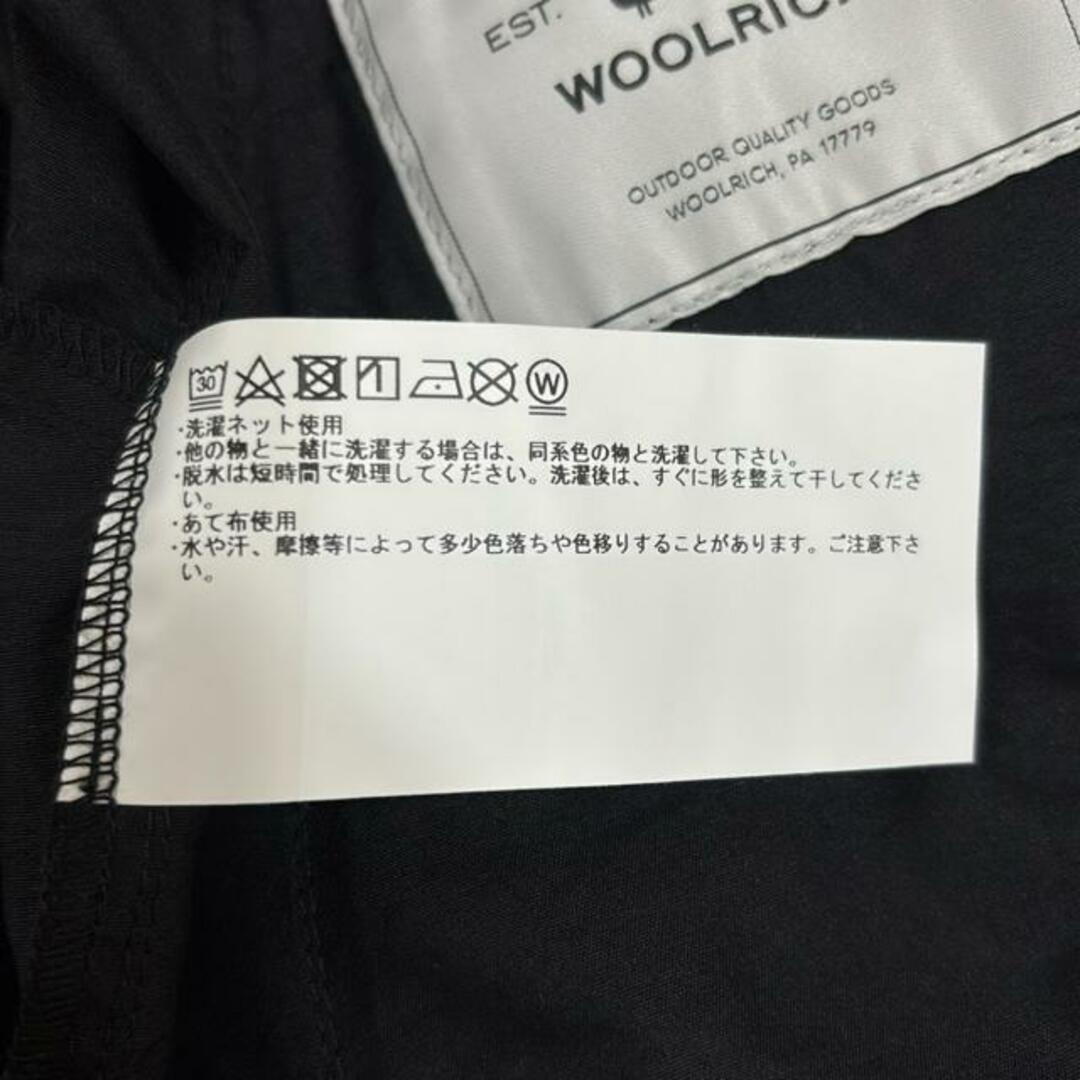 EST.
WOOLRICH
OUTDOOR QUALITY GOODS
WOOLRICH, PA 17779
30
W
・洗濯ネット使用
・他の物と一緒に洗濯する場合は、同系色の物と洗濯して下さい。
・脱水は短時間で処理してください。洗濯後は、すぐに形を整えて干してくださ
い。
・あて布使用
・水や汗、摩擦等によって多少色落ちや色移りすることがあります。ご注意下さ
い。